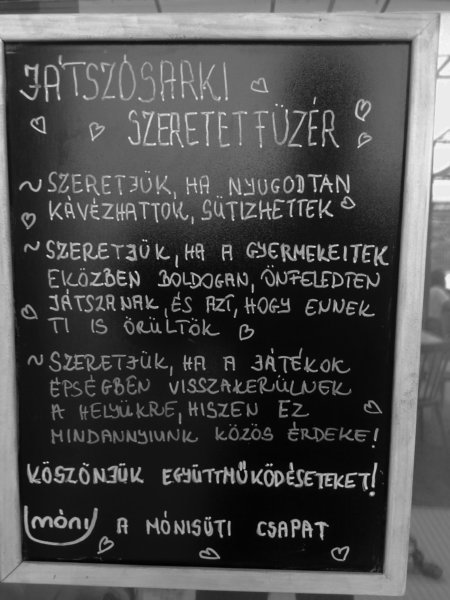 JÁTSZÓSARKI
SZERETETFÜZÉR
~ SZERETJÜK, HA NYUGODTAN
KÁVÉZHATTOK, SÜTIZHETTEK
~ SZERETJÜK, HA A GYERMEKEITEK
EKÖZBEN BOLDOGAN, ÖNFELEDTEN
JÁTSZANAK, ÉS AZT, HOGY ENNEK
TI IS ÖRÜLTÖK
~ SZERETJÜK, HA A JÁTÉKOK
ÉPSÉGBEN VISSZAKERÜLNEK
A HELYÜKRE, HISZEN EZ
MINDANNYIUNK KÖZÖS ÉRDEKE!
KÖSZÖNJÜK EGYÜTTMŰKÖDÉSETEKET!
móni A MÓNISÜTI CSAPAT